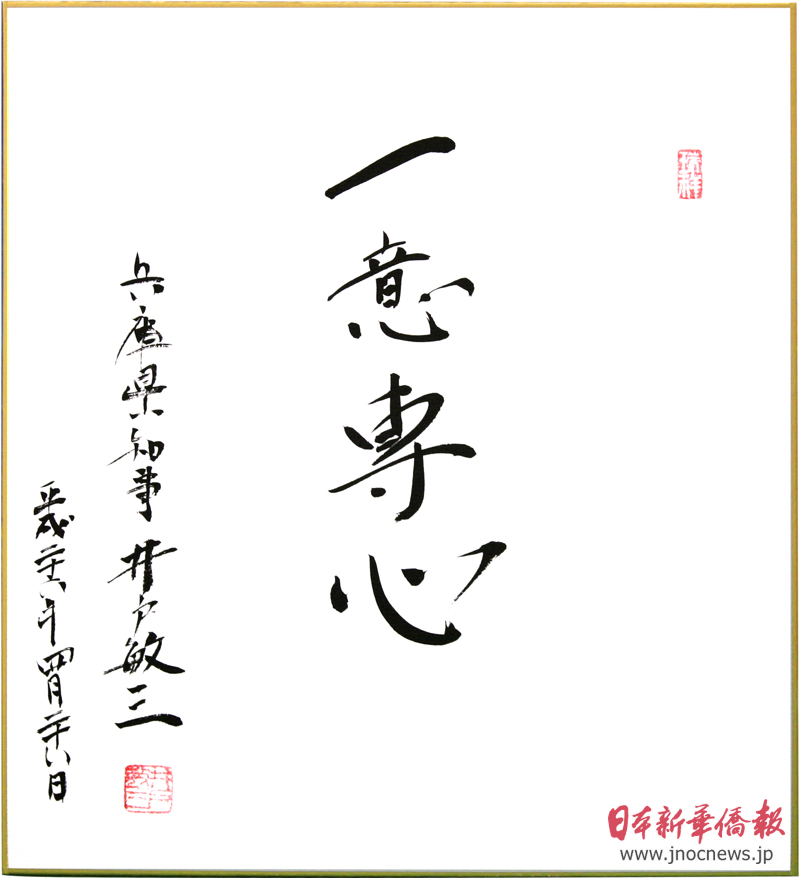 一意専心
兵庫県知事 井戸敏三
平成二十六年四月二十八日
日本新華僑報
www.jnocnews.jp